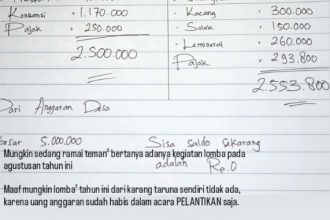 - Kacang . 300.000
Konsumsi . 1.170.000 - Salak . 150.000
Pajak . 250.000 - Lemineral . 260.000
2.500.000 Pajak . 293.800
2.553.800
Dari Anggaran Desa
sar 5.000.000 Sisa Saldo Sekarang
adalah Rp.0
Mungkin sedang ramai teman² bertanya adanya kegiatan lomba pada
agustusan tahun ini
Maaf mungkin lomba² tahun ini dari karang taruna sendiri tidak ada,
karena uang anggaran sudah habis dalam acara PELANTIKAN saja.